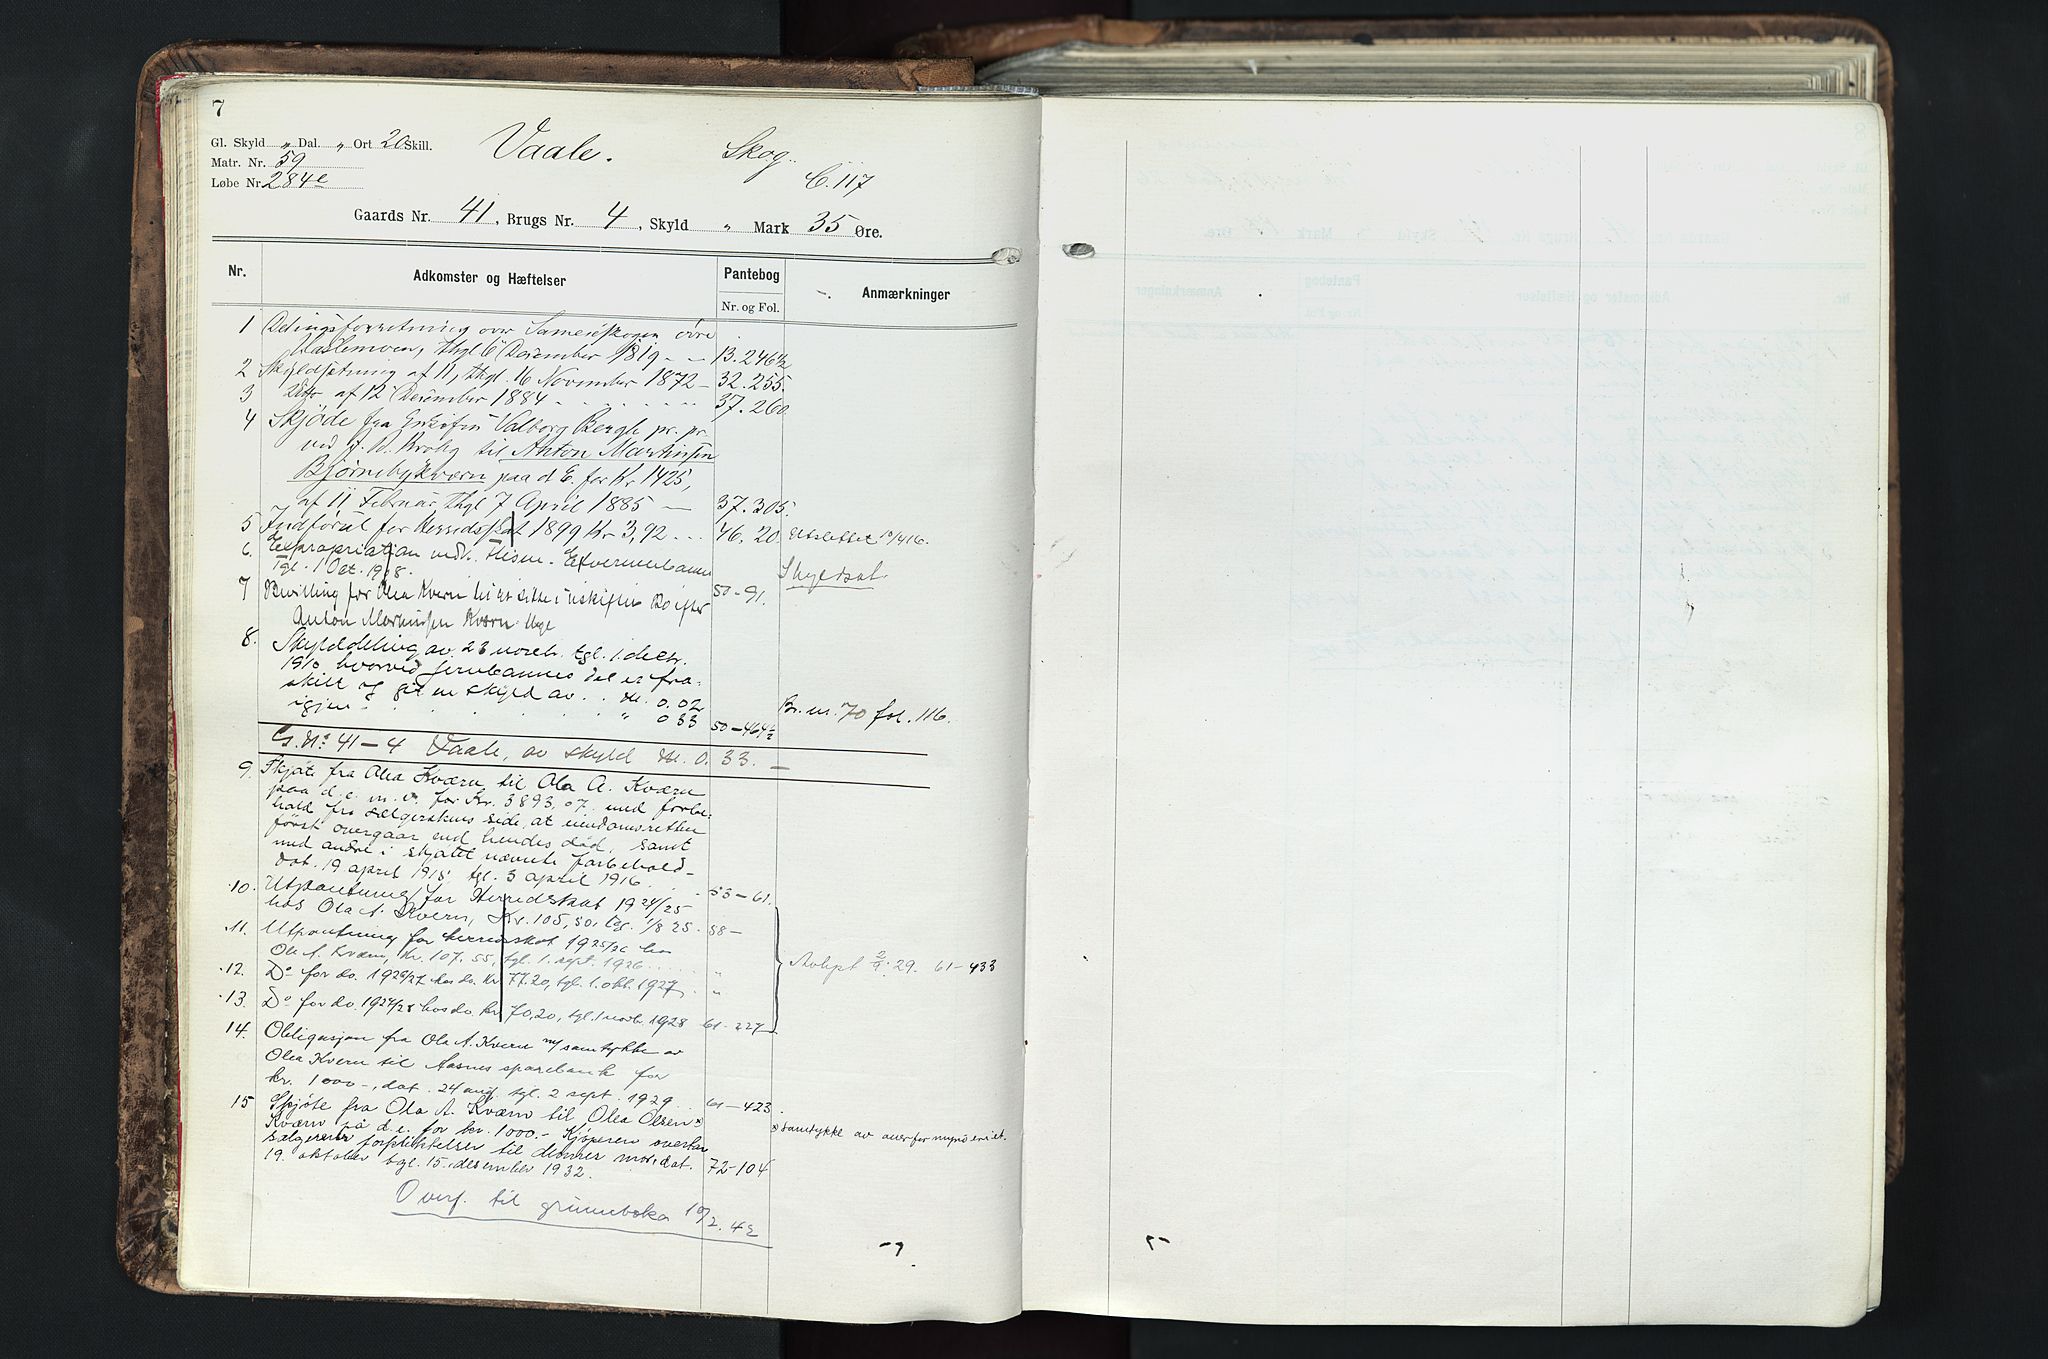 7
Gl. Skyld " Dal. " Ort 20 Skill.
Vaale. Skog.
Matr. Nr. 59
Løbe Nr. 284e
C. 117
Gaards Nr. 41, Brugs Nr. 4, Skyld " Mark 35 Øre.
Nr. Adkomster og Hæftelser Pantebog Anmærkninger
Nr. og Fol.
1 Delingsforretning over Sameieskogen øvre
Haslemoen, thgl 6 December 1819 - - 13.246½
2 Skyldsætning af 11, thgl. 16 November 1872 - 32.255.
3 Dto af 12 December 1884 - 37.260
4 Skjøde fra Enkefru Valborg Bergh pr. pr.
ved J. N. Krohg til Anton Martinsen
Bjørnebykværn paa d. E. for Kr 1425,
af 11 Februar, thgl 7 April 1885 - 37.305.
5 Indførsel for Herredsskat 1899 Kr 3,92 - 46.20 Udslettet 10/4 16.
6 Expropriation vedk. Elverumbanen
Tgl. 1 Oct. 1908. Skyldsat.
7 Bevilling for Olea Kvern til at sitte i uskiftet Bo efter 50-91.
Anton Martinsen Kværn
8. Skylddeling av 23 novebr. tgl. 1. decbr.
1910 hvorved Jernbanens del er fra-
skilt og git en skyld av . . M. 0.02 Br. nr. 70 fol. 116.
igjen . . . . " 0 33 50-464½
G. Nr. 41-4 Vaale, av skyld M. 0.33. -
9. Skjøte fra Olea Kværn til Ola A. Kværn
paa d. e. m. v. for Kr. 3893,07. med forbe-
hold fra sælgerskens side, at eiendomsretten
først overgaar ved hendes død, samt
med andre i skjøtet nævnte forbehold -
dat. 19 april 1915 tgl. 3 april 1916 . . 53-61.
10. Utpantning for Herredskat 1924/25
hos Ola A. Kvern, Kr. 105,50, tgl. 1/8 25. 58 -
11. Utpantning for herredsskat 1925/26 hos
Ola A. Kværn, Kr. 107.55, tgl. 1. sept. 1926 . . . "
Avlyst 2/9. 29. 61-433
12. Do for do. 1926/27 hos do. Kr 77.20, tgl. 1. okt. 1927 . "
13. Do for do. 1927/28 hos do. kr 70,20, tgl. 1 novbr. 1928 61-227
14. Obligasjon fra Ola A. Kvern m/samtykke av
Olea Kvern til Aasnes sparebank for
kr. 1000-, dat. 24 aug. tgl. 2 sept. 1929 . . 61-423.
15 Skjøte fra Ola A. Kværn til Olea Olsen x
Kværn på d. e. for kr. 1000.- Kjøperen overtar x samtykke av overformynderiet.
sælgerens forpliktelser til dennes mor. dat.
19. oktober tgl. 15. desember 1932. 72-104
Overf. til grunnboka 10/2. 42